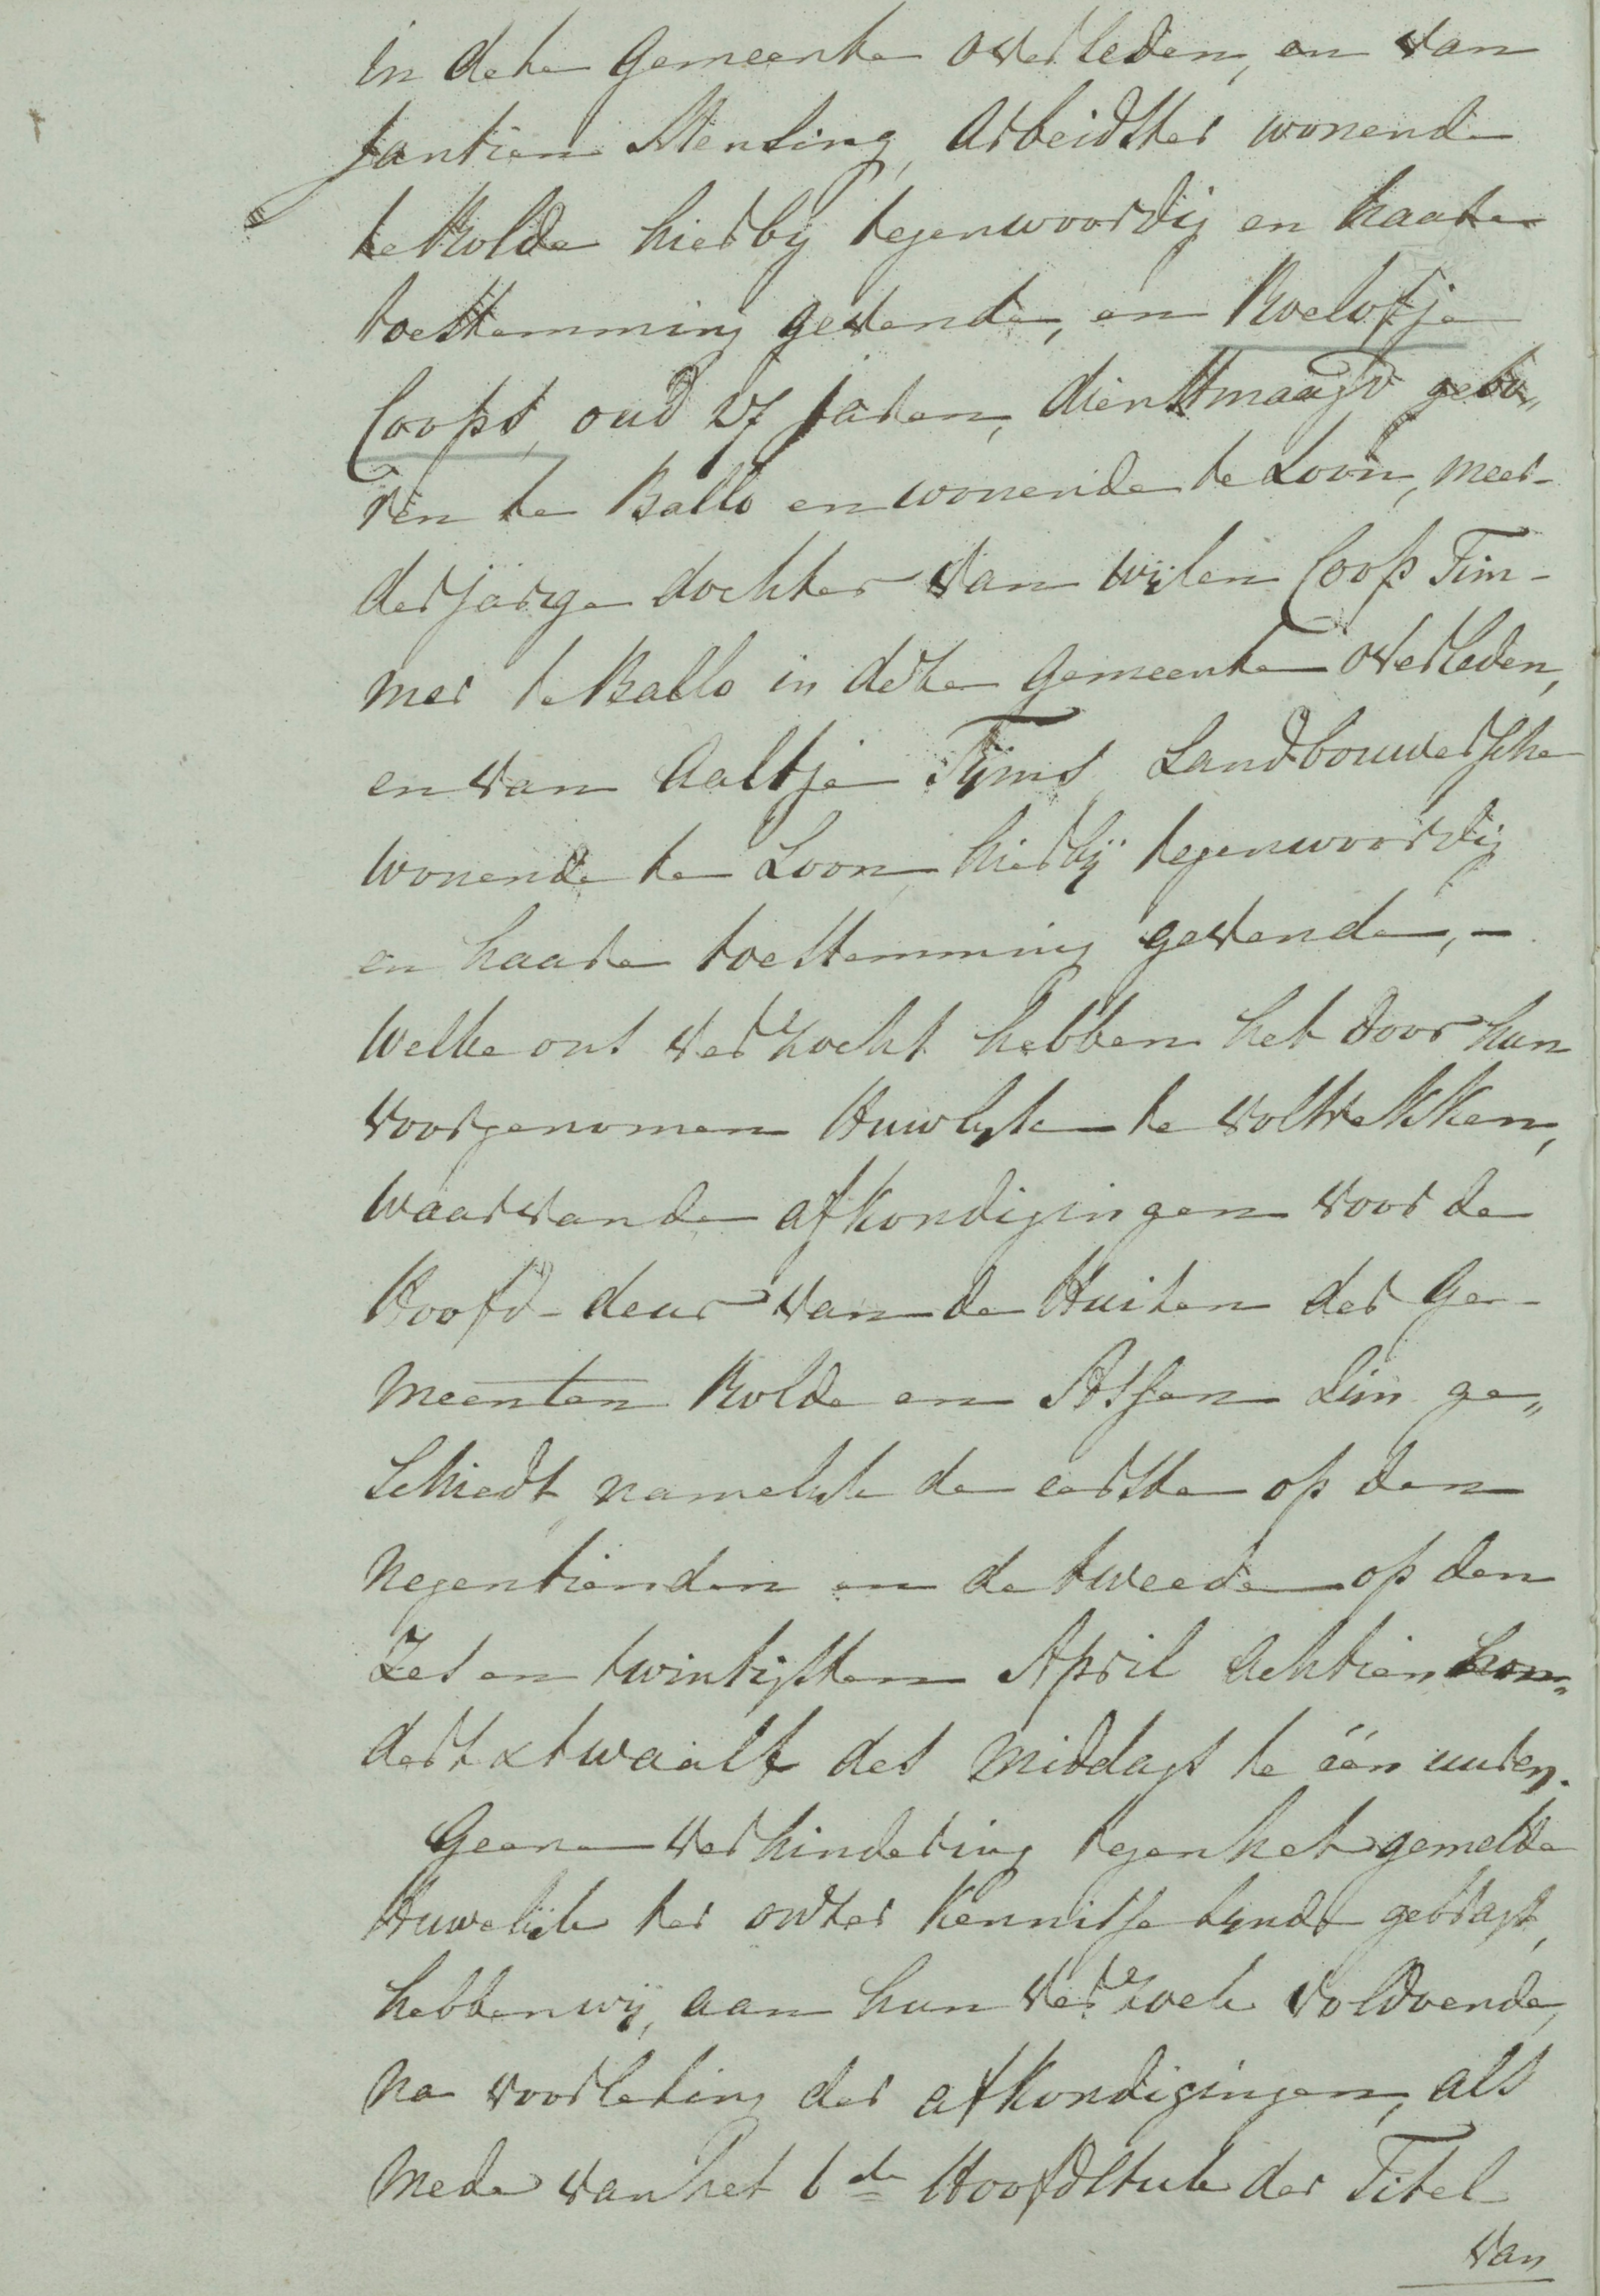 in deze Gemeente overleden, en van
Jantien Mensing, Arbeidster wonende
te Rolde hierby tegenwoordig en haare
toestemming gevende, en Roelofje
Coops, oud 27 jaren, dienstmaagd gebo„
ren te Ballo en wonende te Loon, meer-
derjarige dochter van wijlen Coop Tim-
mer te Ballo in deze Gemeente overleden,
en van Aaltje Tijms Landbouwersche
wonende te Loon hierbij tegenwoordig
en haare toestemming gevende, -
Welke ons verzocht hebben het door hun
voorgenomen Huwlyk te voltrekken,
waarvan de afkondigingen voor de
Hoofd-deur van de Huizen der Ge-
meenten Rolde en Assen zijn ge„
schiedt namelyk de eerste op den
negentienden en de tweede op den
Zes en twintigsten April Achtien hon„
dert & twaalf des middags te één uuren.
Geene verhindering tegen het gemelde
Huwelijk ter onzer kennisse zynde gebragt,
hebben wij, aan hun verzoek voldoende,
na voorlezing der afkondigingen, als
mede van het 6de Hoofdstuk der Titel
van